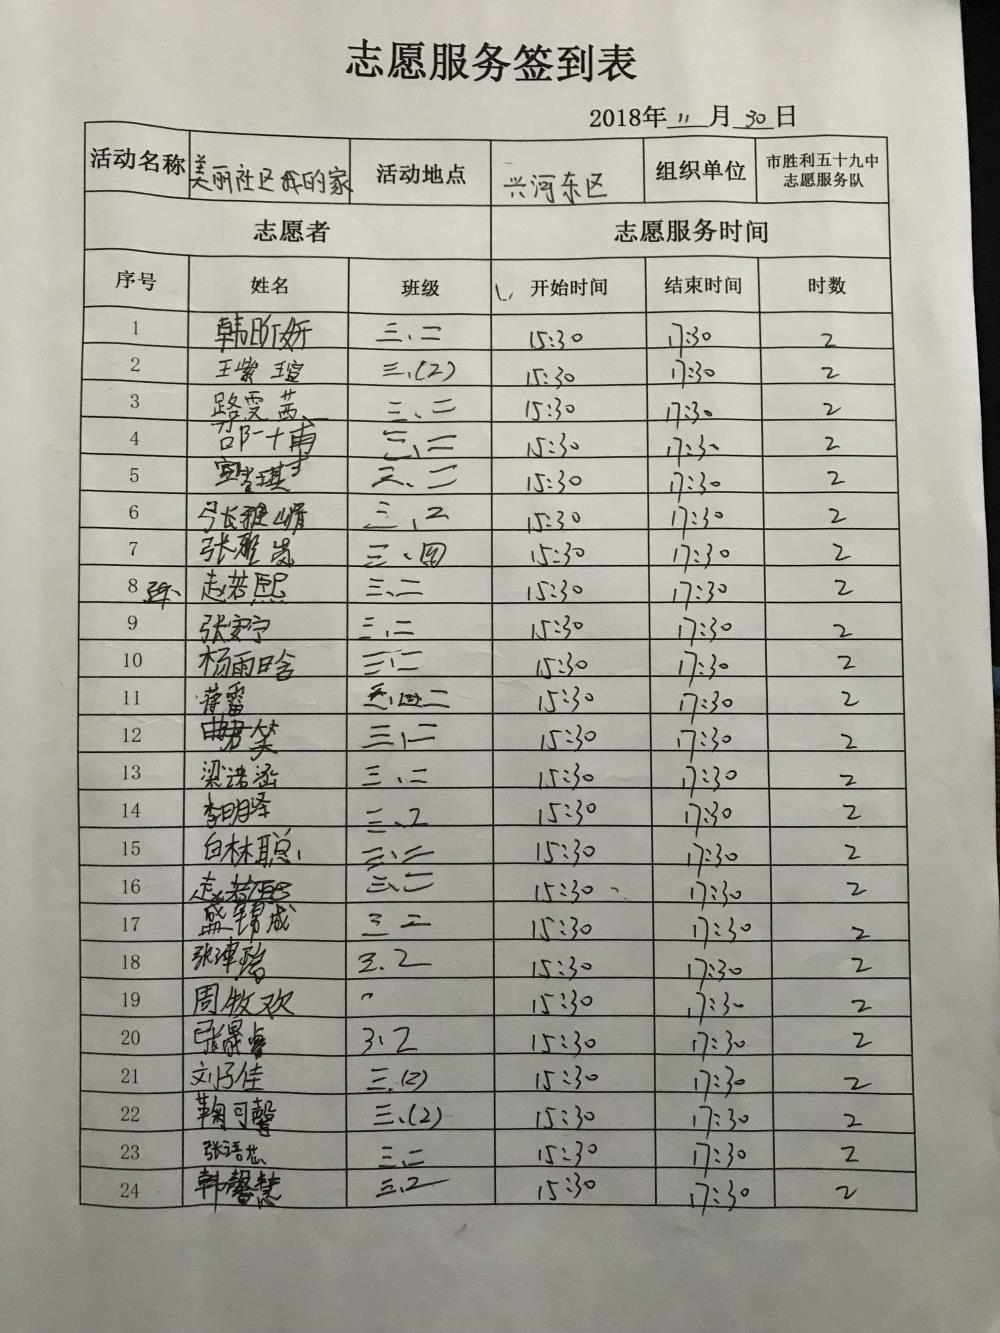 志愿服务签到表
2018年 11 月 30 日
活动名称 美丽社区我的家 活动地点 兴河东区 组织单位 市胜利五十九中志愿服务队
志愿者 志愿服务时间
序号 姓名 班级 开始时间 结束时间 时数
1 韩昕妍 三、二 15:30 17:30 2
2 王紫瑄 三、(2) 15:30 17:30 2
3 路雯茜 三、二 15:30 17:30 2
4 邵一甫 三、二 15:30 17:30 2
5 三、二 15:30 17:30 2
6 张雅婧 三、2 15:30 17:30 2
7 张雅岚 三、四 15:30 17:30 2
8 赵若熙 三、二 15:30 17:30 2
9 张安宁 三、二 15:30 17:30 2
10 杨雨晗 三、二 15:30 17:30 2
11 蒋雷 二 15:30 17:30 2
12 曲君笑 三、二 15:30 17:30 2
13 梁诺涵 三、二 15:30 17:30 2
14 李明泽 三、2 15:30 17:30 2
15 白林聪 三、二 15:30 17:30 2
16 三、二 15:30 17:30 2
17 盛锦成 三 二 15:30 17:30 2
18 张津 三、2 15:30 17:30 2
19 周牧欢 〃 15:30 17:30 2
20 张晟睿 3、2 15:30 17:30 2
21 刘子佳 三、(2) 15:30 17:30 2
22 鞠可馨 三、(2) 15:30 17:30 2
23 张语芯 三、二 15:30 17:30 2
24 韩馨慧 三、2 15:30 17:30 2